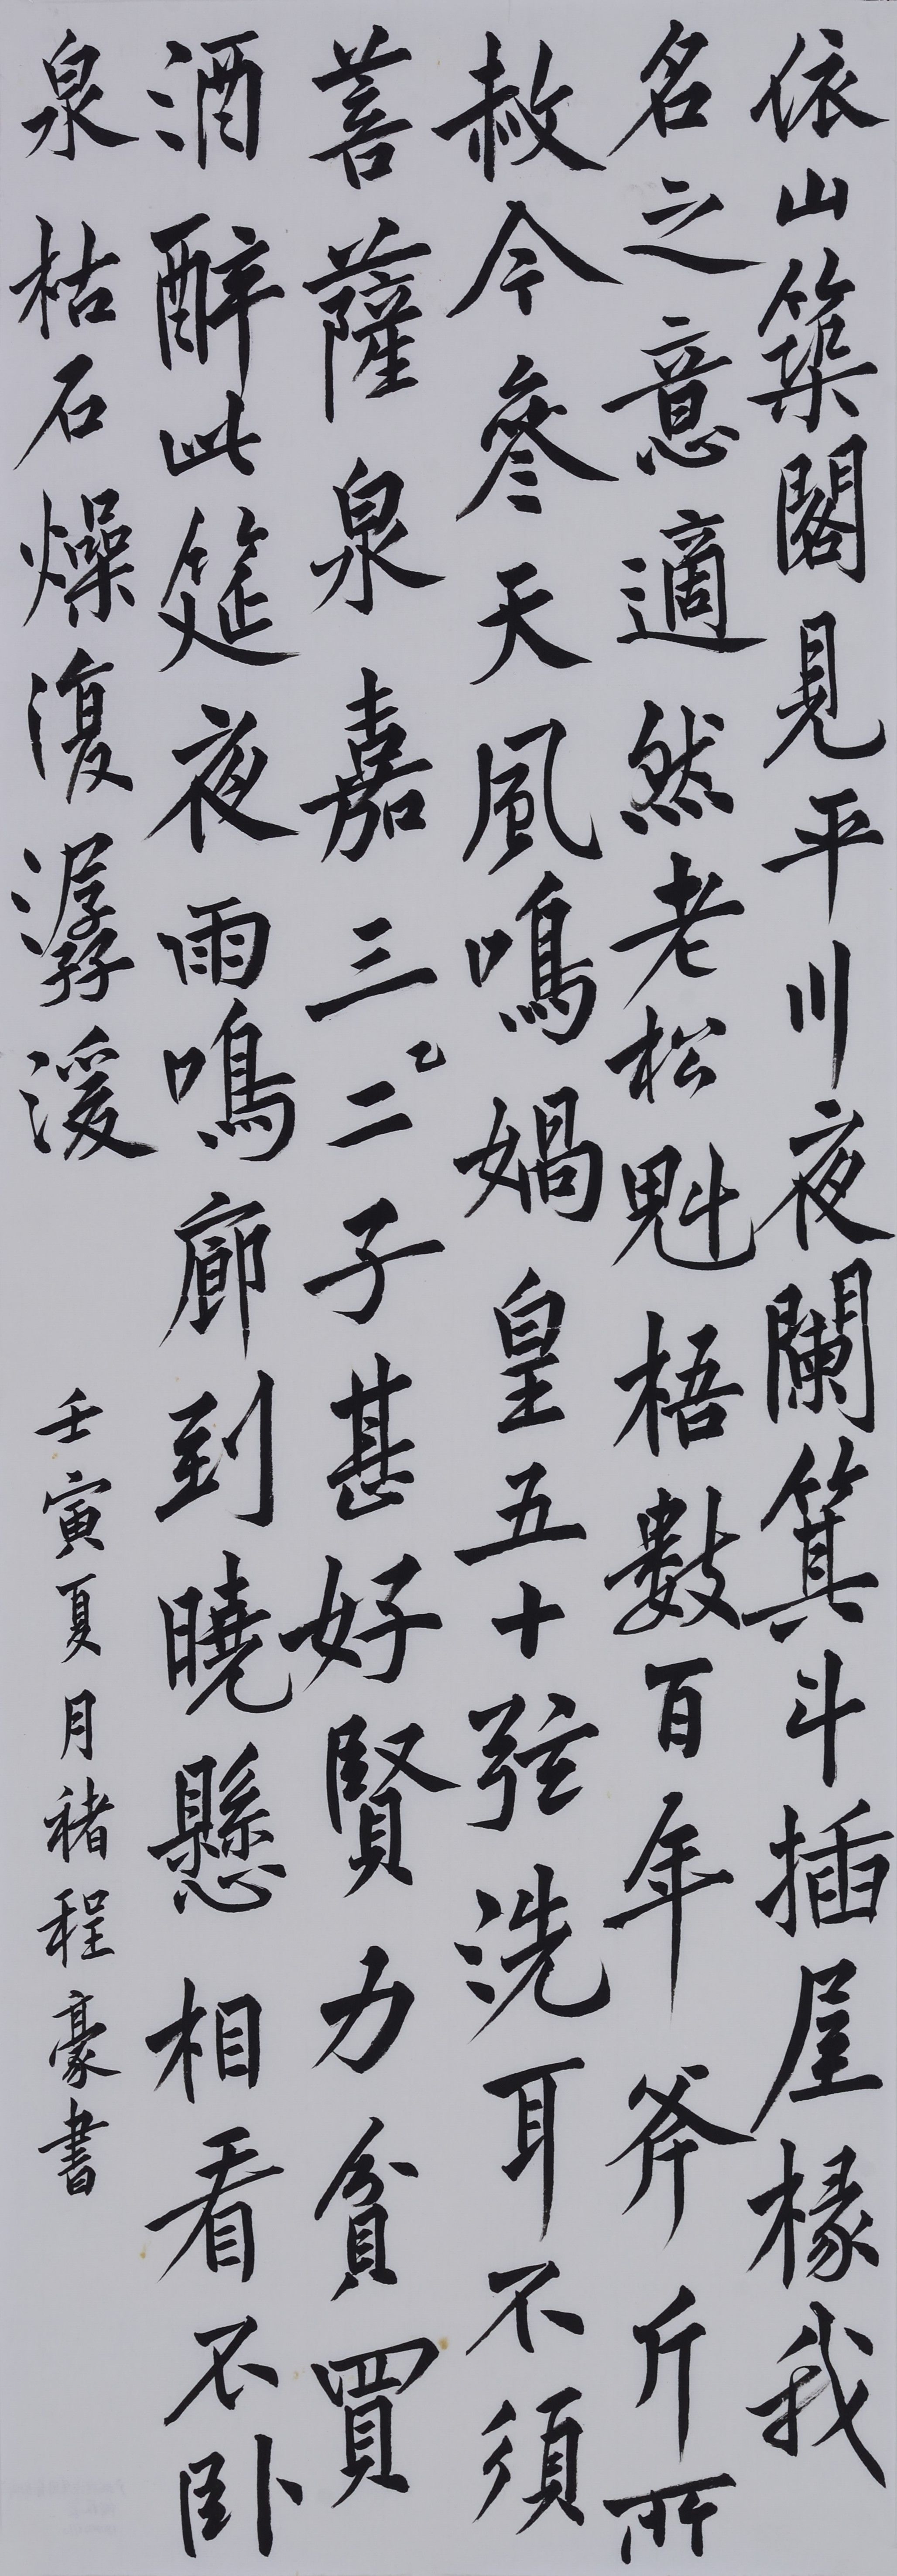 依山築閣見平川夜闌箕斗插屋椽我
名之意適然老松魁梧數百年斧斤所
赦今參天風鳴媧皇五十弦洗耳不須
菩薩泉嘉三二子甚好賢力貧買
酒醉此筵夜雨鳴廊到曉懸相看不臥
泉枯石燥復潺湲
壬寅夏月褚程豪書